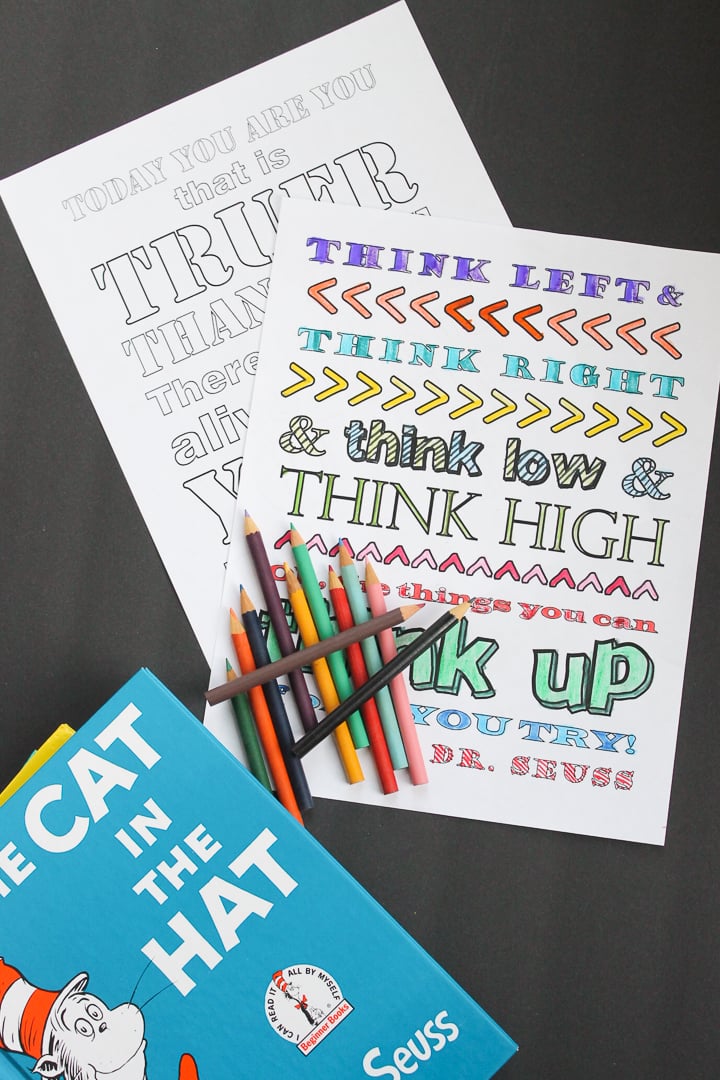 TODAY YOU ARE YOU
that is
TRUER
THAN
There
THINK LEFT &
<<<<<<<<<<<
THINK RIGHT
>>>>>>>>>>>>
& think low &
THINK HIGH
things you can
up
YOU TRY!
DR. SEUSS
THE CAT
IN
THE
HAT
I CAN READ IT ALL BY MYSELF
Beginner Books
Seuss